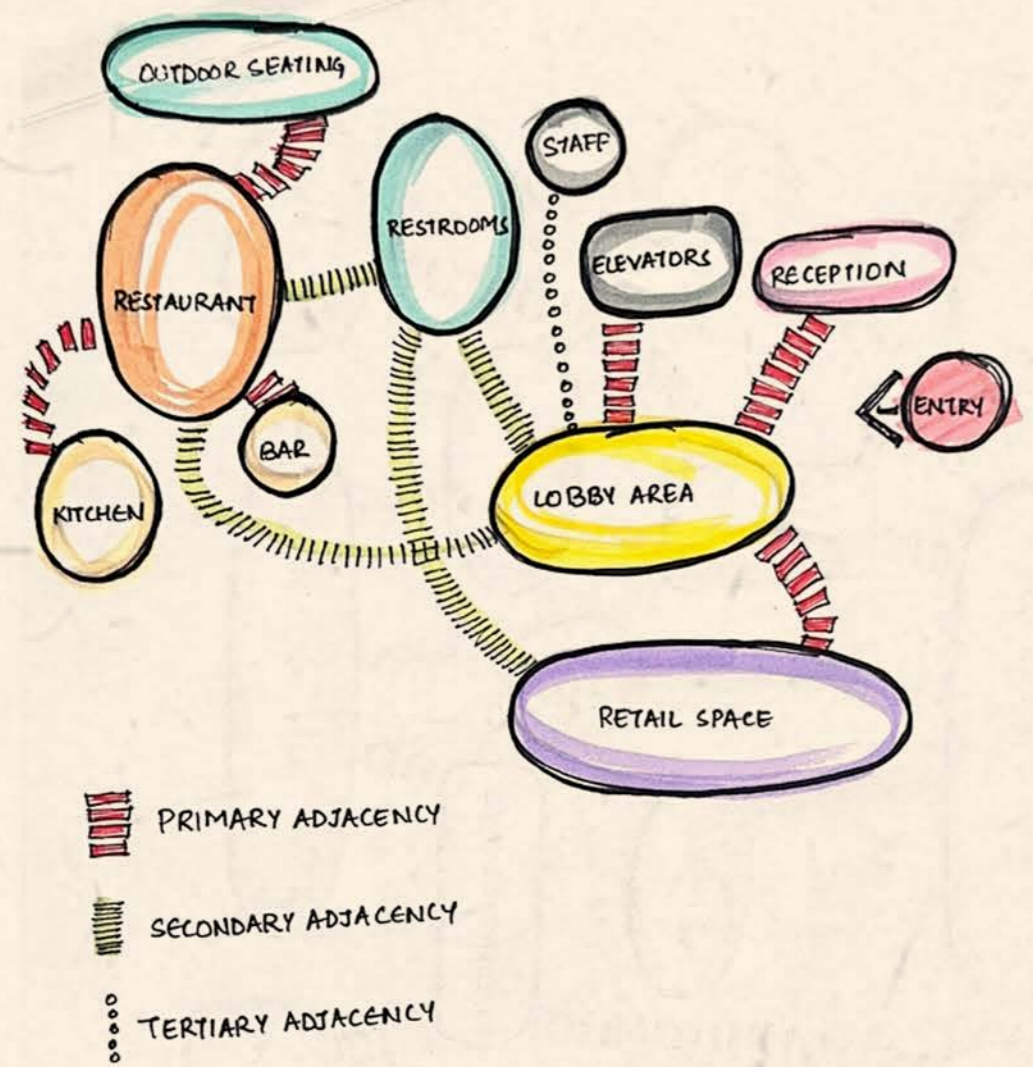 OUTDOOR SEATING
STAFF
RESTROOMS
ELEVATORS
RECEPTION
RESTAURANT
ENTRY
BAR
LOBBY AREA
KITCHEN
RETAIL SPACE
PRIMARY ADJACENCY
SECONDARY ADJACENCY
TERTIARY ADJACENCY